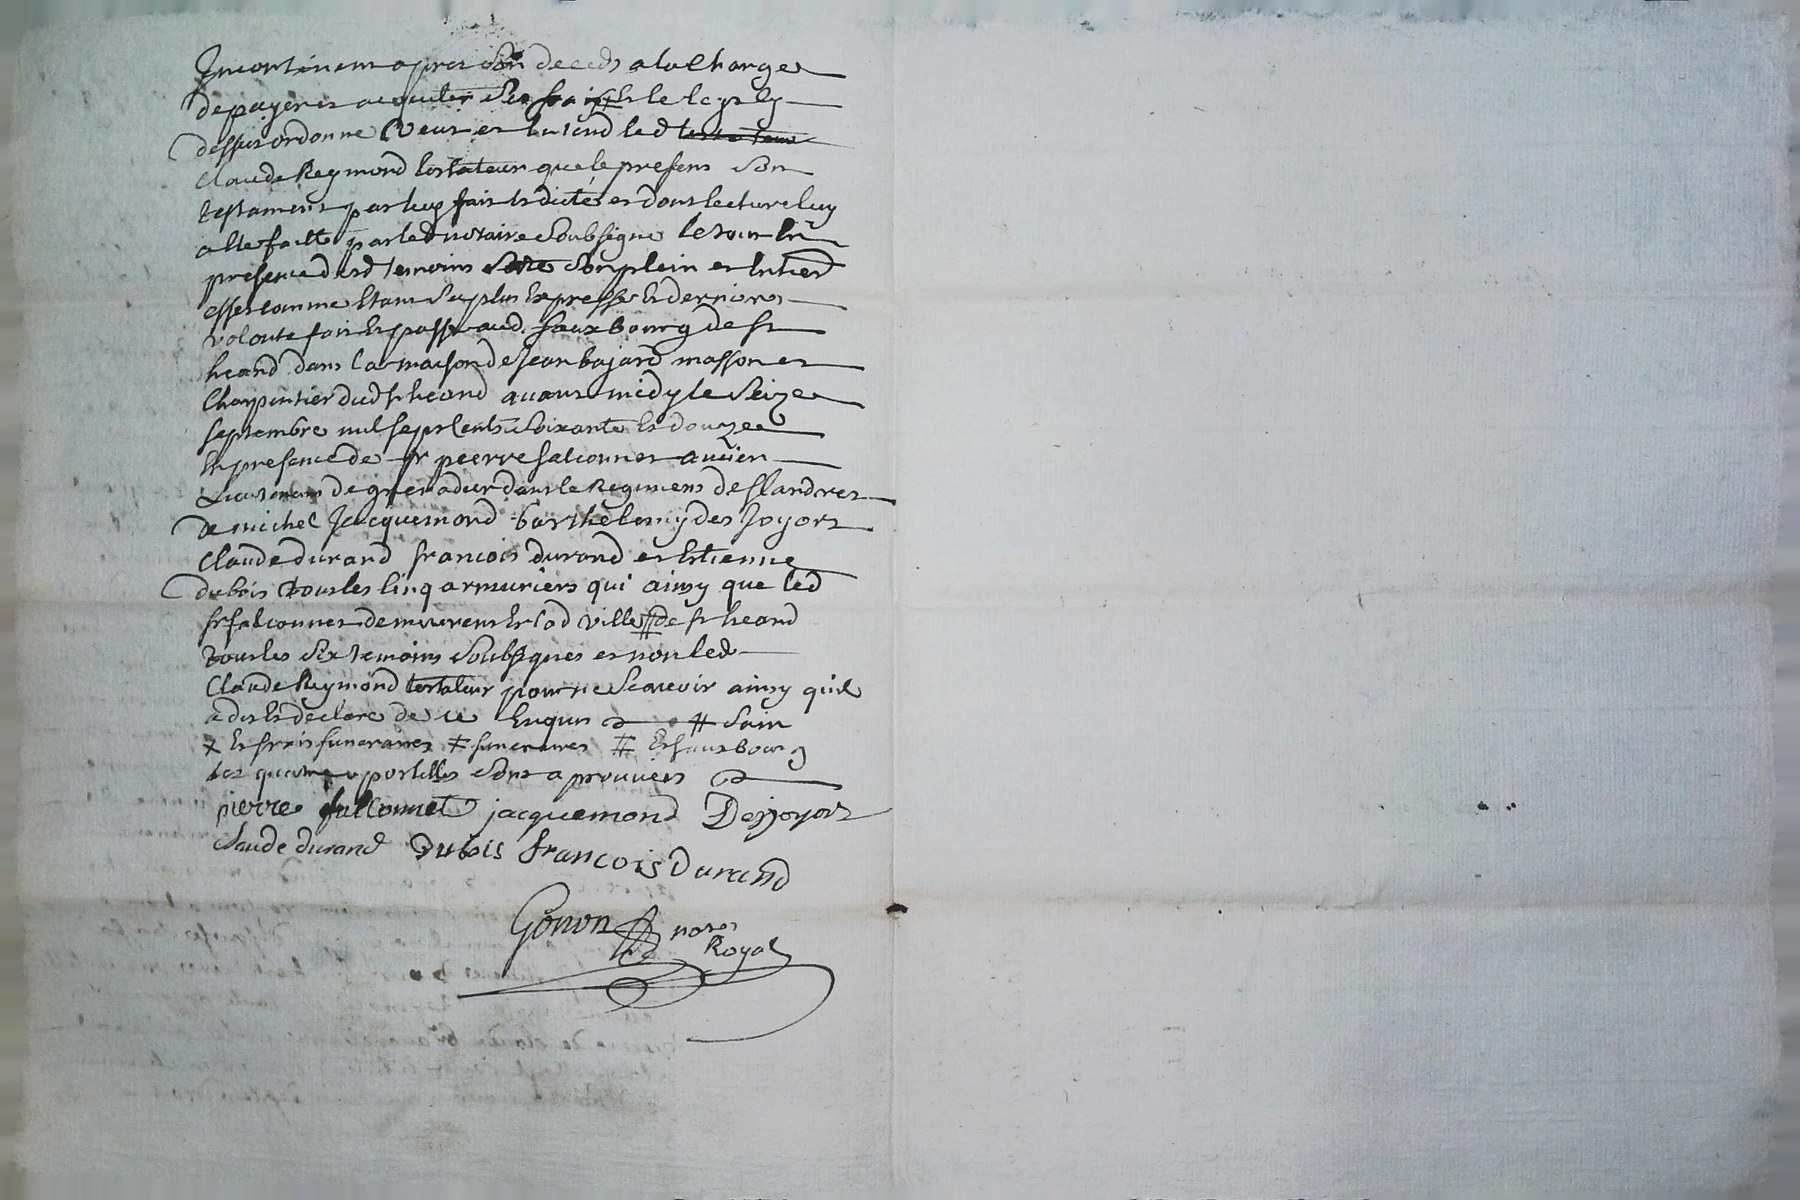 Incontinent apres son deceds a la Charge
de payer et acquiter ses frais # et le legs ly
dessus ordonne Veut et Entend led testateur
Claude Reymond testateur que le present son
testament par luy fait et dicté et dont lecture luy
a ete faitte par led notaire soubsigne le tour En
presence desd temoins sorte son plein et Entier
effet comme Etant sa plus Expresse et derniere
volonte fait et passe aud. fauxbourg de st
heand dans la maison de Jean bajard masson et
Charpentier dud st heand avant midy le seize
septembre mil sept Cents soixante et douze
En presence de sr pierre falconnet ancien
Lieutenant de grenadier dans le Regiment de flandres
de michel Jacquemond barthelemy des Joyots
Claude durand francois durand et Etienne
dubois tous les Cinq armuriers qui ainsy que led
sr falconnet demeurent En lad ville # de st heand
tous les six temoins soubsignes et non led
Claude Reymond testateur pour ne scavoir ainsy quil
a dit et declare de ce Enquis # sain
+ et frais funeraires ‡ funeraires # et fauxbourg
les quatre apostilles sont aprouvées
pierre falconnet jacquemond Desjoyots
claude durand Dubois francois Durand
Gonon nore
Royal